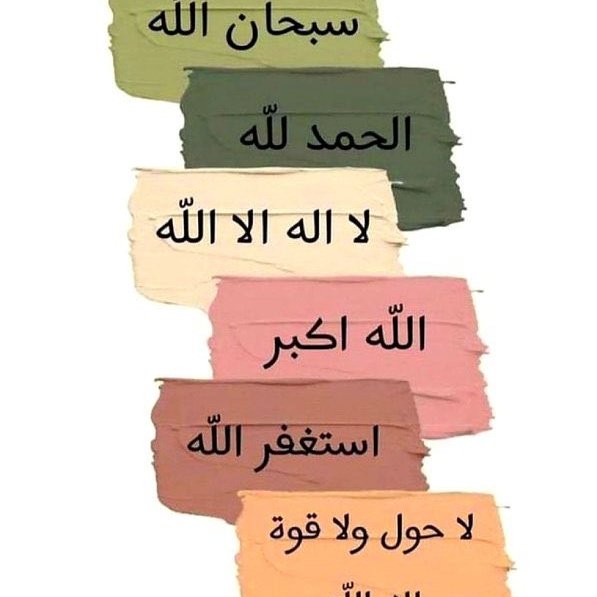 سبحان الله
الحمد لله
لا اله الا الله
الله اكبر
استغفر الله
لا حول ولا قوة